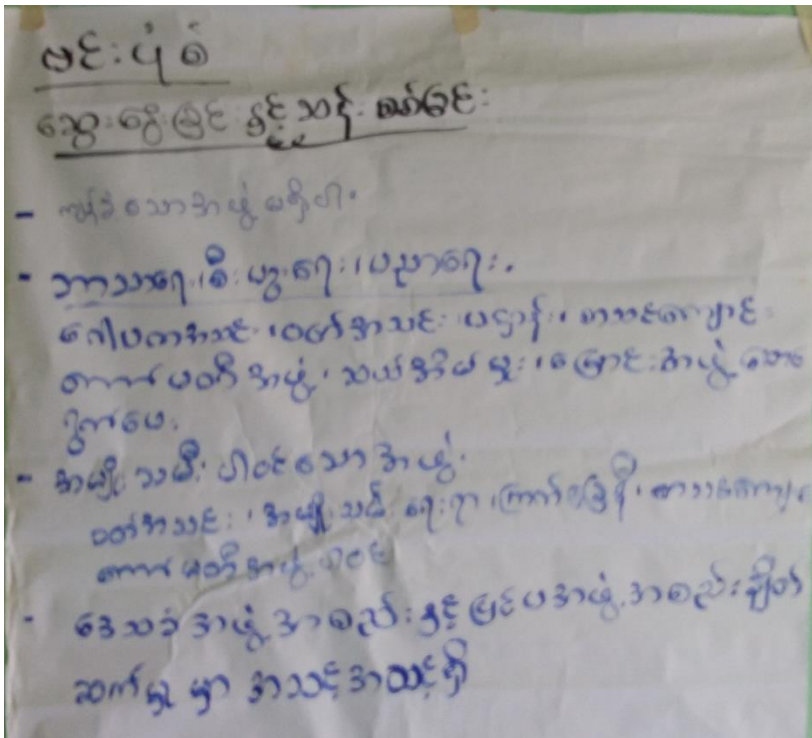 ဗင်းပုံစံ
ဆွေးနွေးခြင်းနှင့်သန်းစစ်ခြင်း
- ကျန်ခဲ့သောအဖွဲ့ မရှိပါ။
- ဘာသာရေး၊ စီးပွားရေး၊ ပညာရေး။
ဂေါပကအသင်း၊ ဝတ်အသင်း၊ ပဌာန်း၊ စာသင်ကျောင်း
ကော်မတီအဖွဲ့၊ ဆယ်အိမ်မှူး၊ မြောင်းအဖွဲ့
ရွက်ပေ။
- အမျိုးသမီး ပါဝင်သောအဖွဲ့.
ဝတ်အသင်း၊ အမျိုးသမီးရေးရာ၊ ကြက်ခြေနီ၊ စာသင်ကျောင်း
ကော်မတီအဖွဲ့ ပါဝင်
- ဒေသခံအဖွဲ့အစည်းနှင့်ပြင်ပအဖွဲ့အစည်းချိတ်
ဆက်မှု မှာ အသင့်အတင့်ရှိ